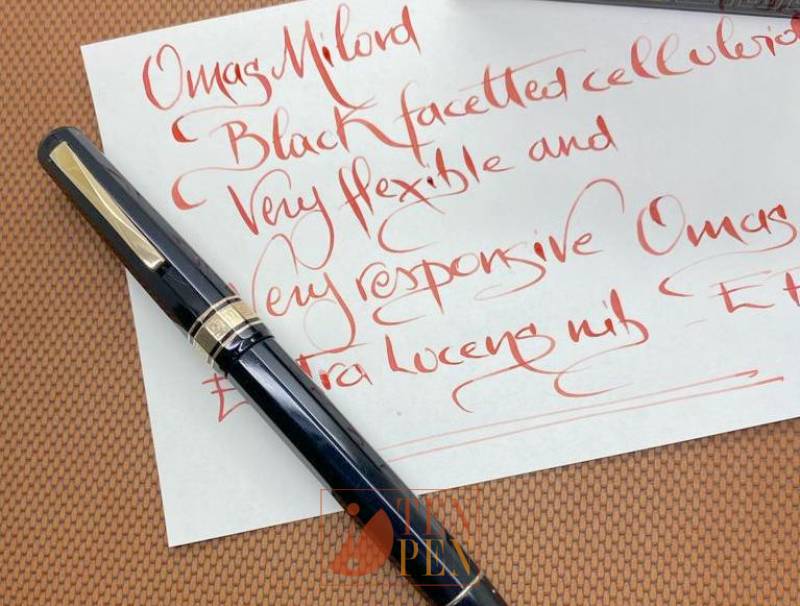 Omas Milord
Black facetted celluloid
Very flexible and
Very responsive Omas
Extra Lucens nib - Et
TEN
PEN